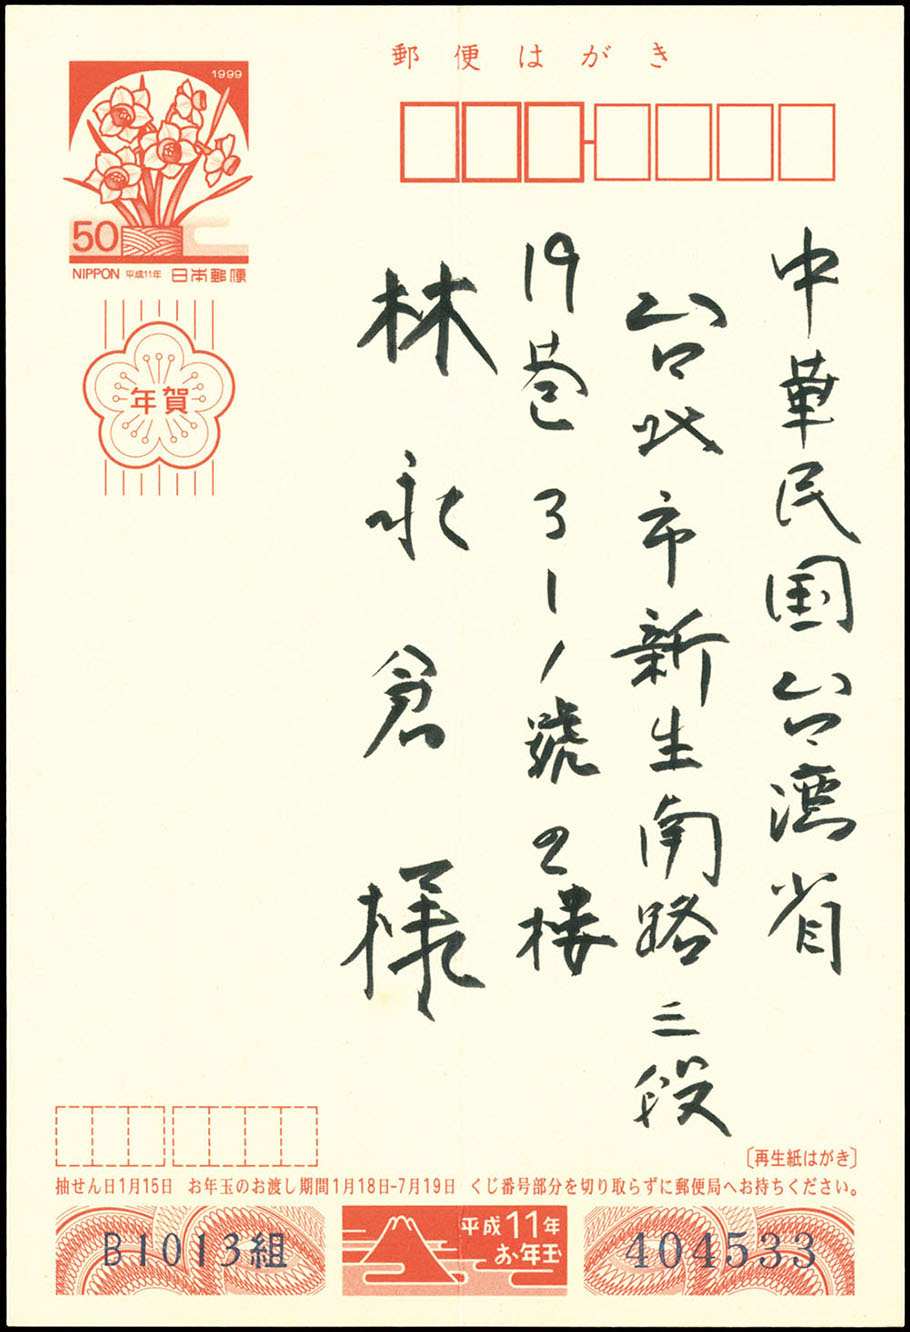 郵便はがき
1999
50
NIPPON 平成11年 日本郵便
年賀
中華民国台湾省
台北市新生南路三段
19巷3-1號2楼
林永倉様
〔再生紙はがき〕
抽せん日1月15日 お年玉のお渡し期間1月18日-7月19日 くじ番号部分を切り取らずに郵便局へお持ちください。
B1013組
平成11年
お年玉
404533